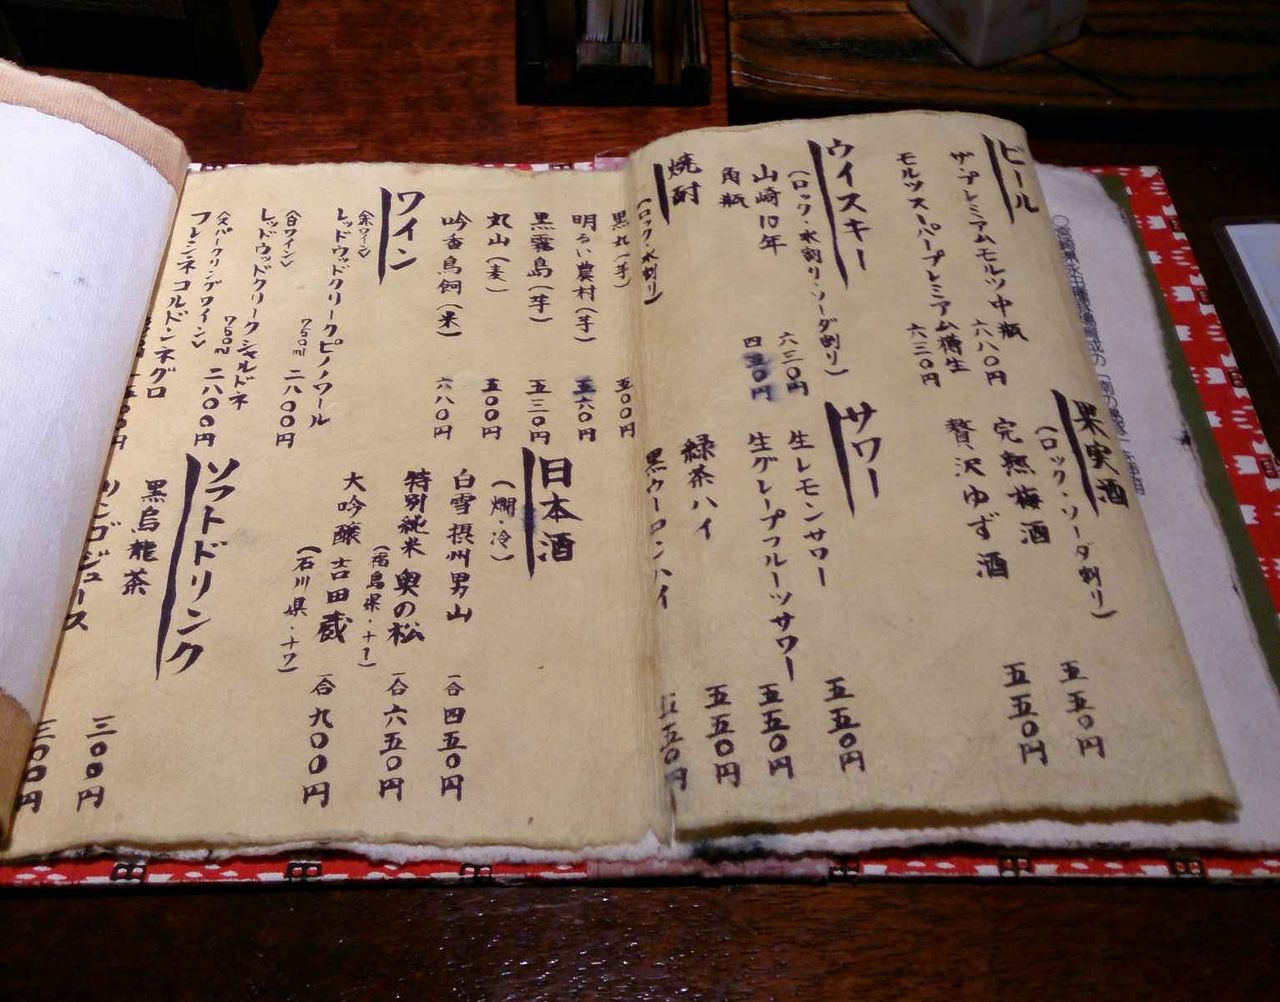 ビール
ザ・プレミアムモルツ中瓶 六八〇円
モルツスーパープレミアム樽生 六三〇円
ウイスキー
(ロック・水割り・ソーダ割り)
山崎10年 六三〇円
角瓶 四五〇円
焼酎
(ロック・水割り)
黒丸(芋) 五〇〇円
明るい農村(芋) 五六〇円
黒霧島(芋) 五三〇円
丸山(麦) 五〇〇円
吟香鳥飼(米) 六八〇円
ワイン
<赤ワイン>
レッドウッドクリークピノノワール
750ml 二八〇〇円
<白ワイン>
レッドウッドクリークシャルドネ
750ml 二八〇〇円
<スパークリングワイン>
フレシネコルドンネグロ
果実酒
(ロック・ソーダ割り)
完熟梅酒 五五〇円
贅沢ゆず酒 五五〇円
サワー
生レモンサワー 五五〇円
生グレープフルーツサワー 五五〇円
緑茶ハイ 五五〇円
黒ウーロンハイ 五五〇円
日本酒
(燗・冷)
白雪摂州男山 一合四五〇円
特別純米 奥の松 一合六五〇円
(福島県・+1)
大吟醸 吉田蔵 一合九〇〇円
(石川県・+7)
ソフトドリンク
黒烏龍茶 三〇〇円
リンゴジュース 三〇〇円